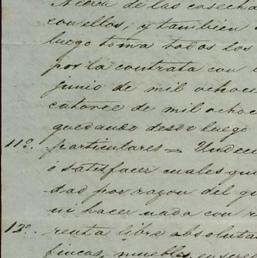 de las cosecha
con ellos, y tambien
luego toma todos los
por la contrata con
junio de mil ochoc
catorce de mil ochoc
quedando desde luego
11.º particulares = Undec
o satisfacer cuales qui
dad por razon del q
ni hacer nada con r
12.º renta libre absoluta
fincas, muebles,